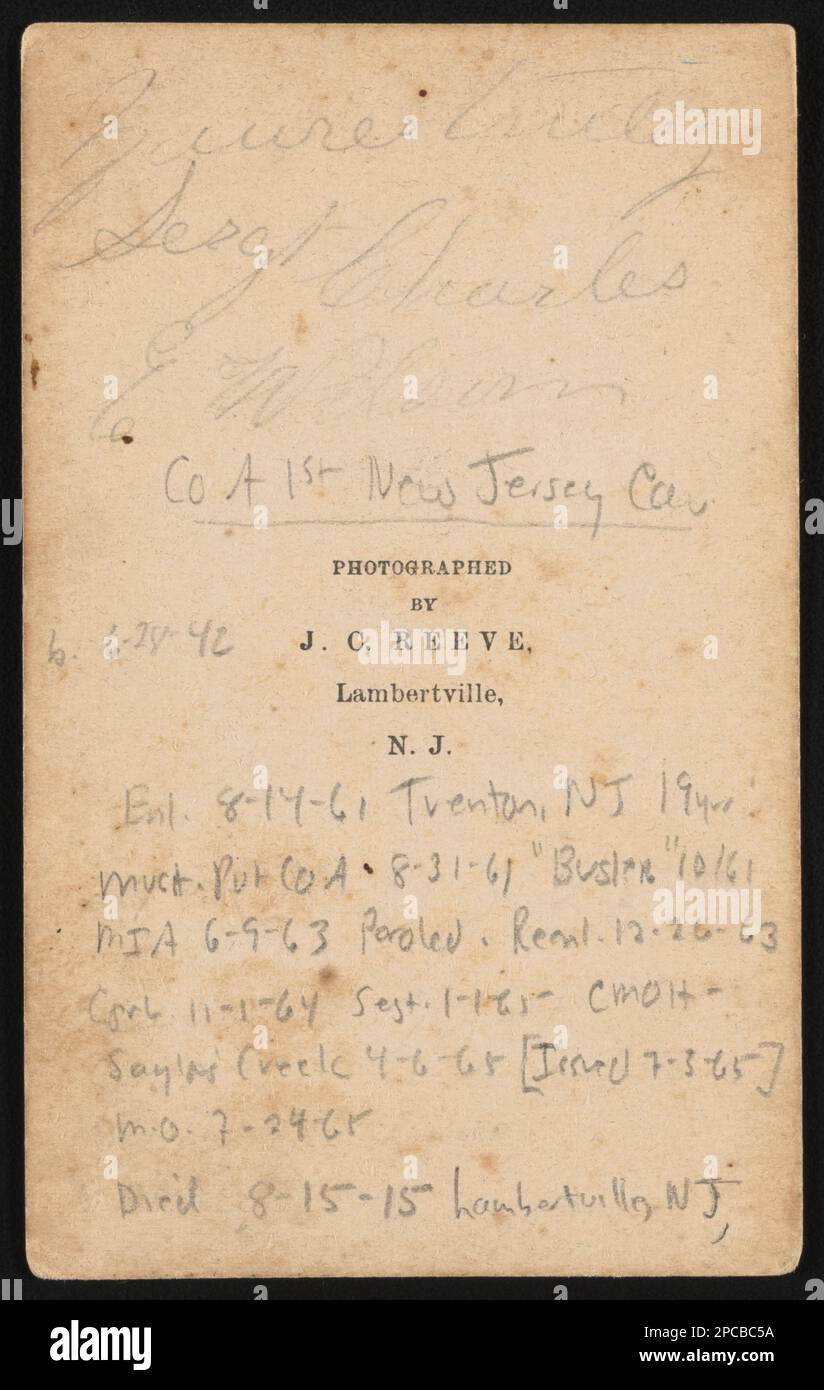 Yours truly
Sergt Charles
E Wilson
Co A 1st New Jersey Cav
PHOTOGRAPHED
BY
J. C. REEVE,
b. 6-28-42
Lambertville,
N. J.
Enl. 8-14-61 Trenton, NJ 19yrs.
Pvt Co A 8-31-61 10/61
MIA 6-9-63 Paroled. Reenl. 12-26-63
Cprl. 11-1-64 Segt. 1-1-65 - CMOH -
Saylors Creek 4-6-65 [Issued 7-3-65]
M.O. 7-24-65
Died 8-15-15 Lambertville, NJ,
alamy
Image ID: 2PCBC5A
www.alamy.com